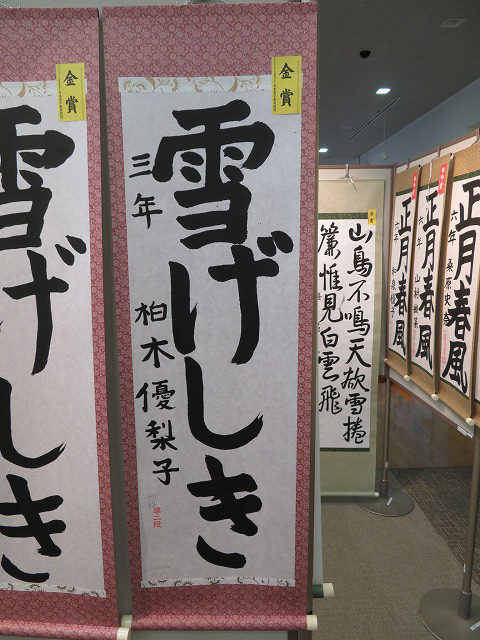 金賞
雪げしき
三年
柏木優梨子
準二段
金賞
雪げしき
金賞
山鳥不鳴天欲雪捲
簾惟見白雲飛
正月春風
六年
桑原史奈
正月春風
六年
正月春風
六年